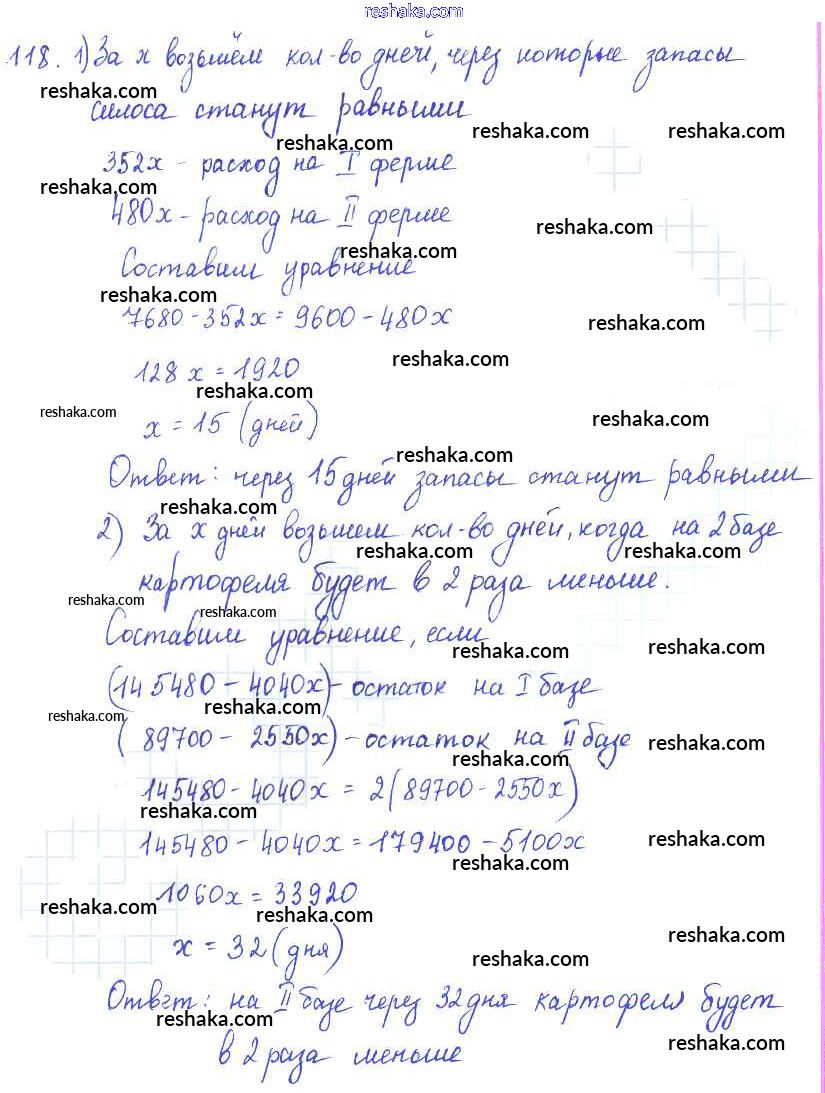 reshaka.com
118. 1) За х возьмём кол-во дней, через которые запасы
reshaka.com
силоса станут равными
reshaka.com reshaka.com reshaka.com
352х - расход на I ферме
reshaka.com
480х - расход на II ферме
reshaka.com
reshaka.com
Составим уравнение
reshaka.com
7680 - 352х = 9600 - 480х
reshaka.com
reshaka.com
128х = 1920
reshaka.com
reshaka.com
х = 15 (дней)
reshaka.com
reshaka.com
Ответ: через 15 дней запасы станут равными
reshaka.com
2) За х дней возьмем кол-во дней, когда на 2 базе
reshaka.com reshaka.com
картофеля будет в 2 раза меньше.
reshaka.com reshaka.com
Составим уравнение, если
reshaka.com reshaka.com
(145480 - 4040х) - остаток на I базе
reshaka.com reshaka.com
(89700 - 2550х) - остаток на II базе
reshaka.com
reshaka.com
145480 - 4040х = 2(89700 - 2550х)
reshaka.com
145480 - 4040х = 179400 - 5100х
reshaka.com
reshaka.com
1060х = 33920
reshaka.com reshaka.com
reshaka.com
х = 32 (дня)
reshaka.com
Ответ: на II базе через 32 дня картофеля будет
reshaka.com reshaka.com
в 2 раза меньше
reshaka.com